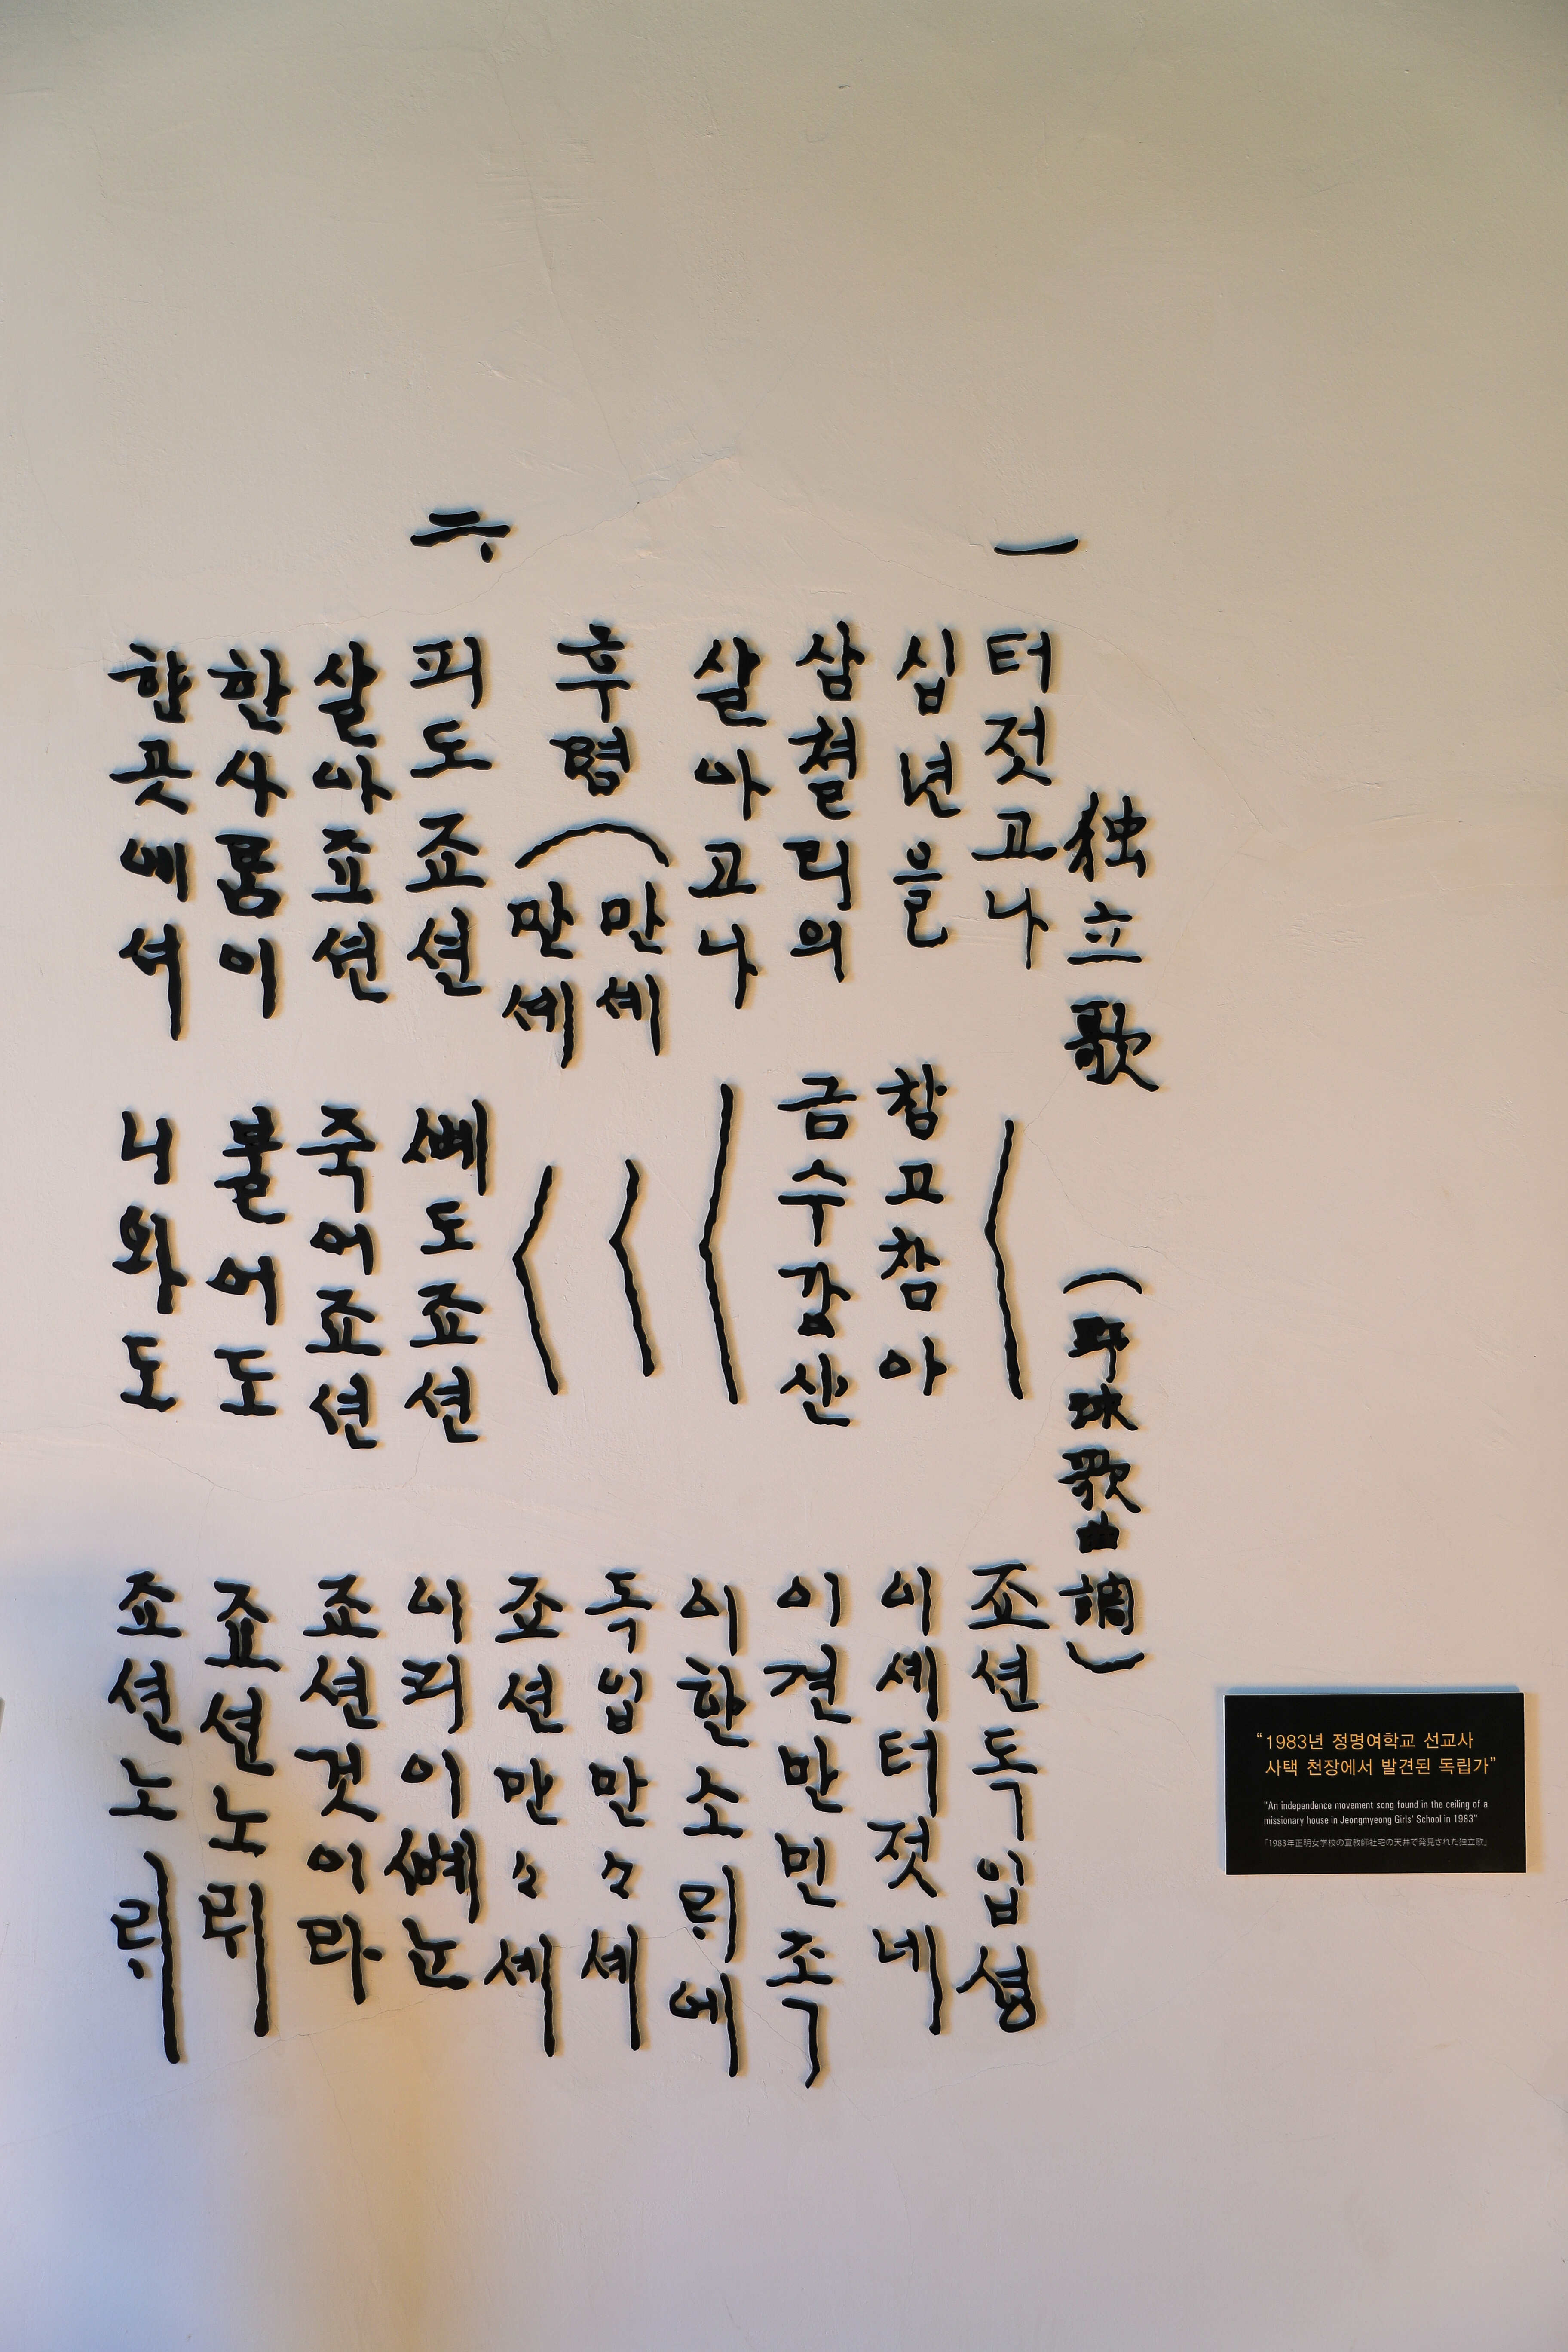 独立歌 (野球歌曲調)
一 터젓고나 〱 죠션독입셩
십년을 참고참아 이셰터젓네
삼쳘리의 금수강산 이쳔만민족
살아고나 〱 이한소ᄅᆡ에
후렴 (만셰 〱 독입만々셰
만셰 〱 죠션만々셰
六 피도죠션 ᄲᅨ도죠션 이피이ᄲᅨ는
살아죠션 죽어죠션 죠션것이라
한사ᄅᆞᆷ이 불어도 죠션노ᄅᆡ
한곳에셔 니와도 죠션노ᄅᆡ
“1983년 정명여학교 선교사
사택 천장에서 발견된 독립가”
"An independence movement song found in the ceiling of a
missionary house in Jeongmyeong Girls' School in 1983"
「1983年正明女学校の宣教師社宅の天井で発見された独立歌」